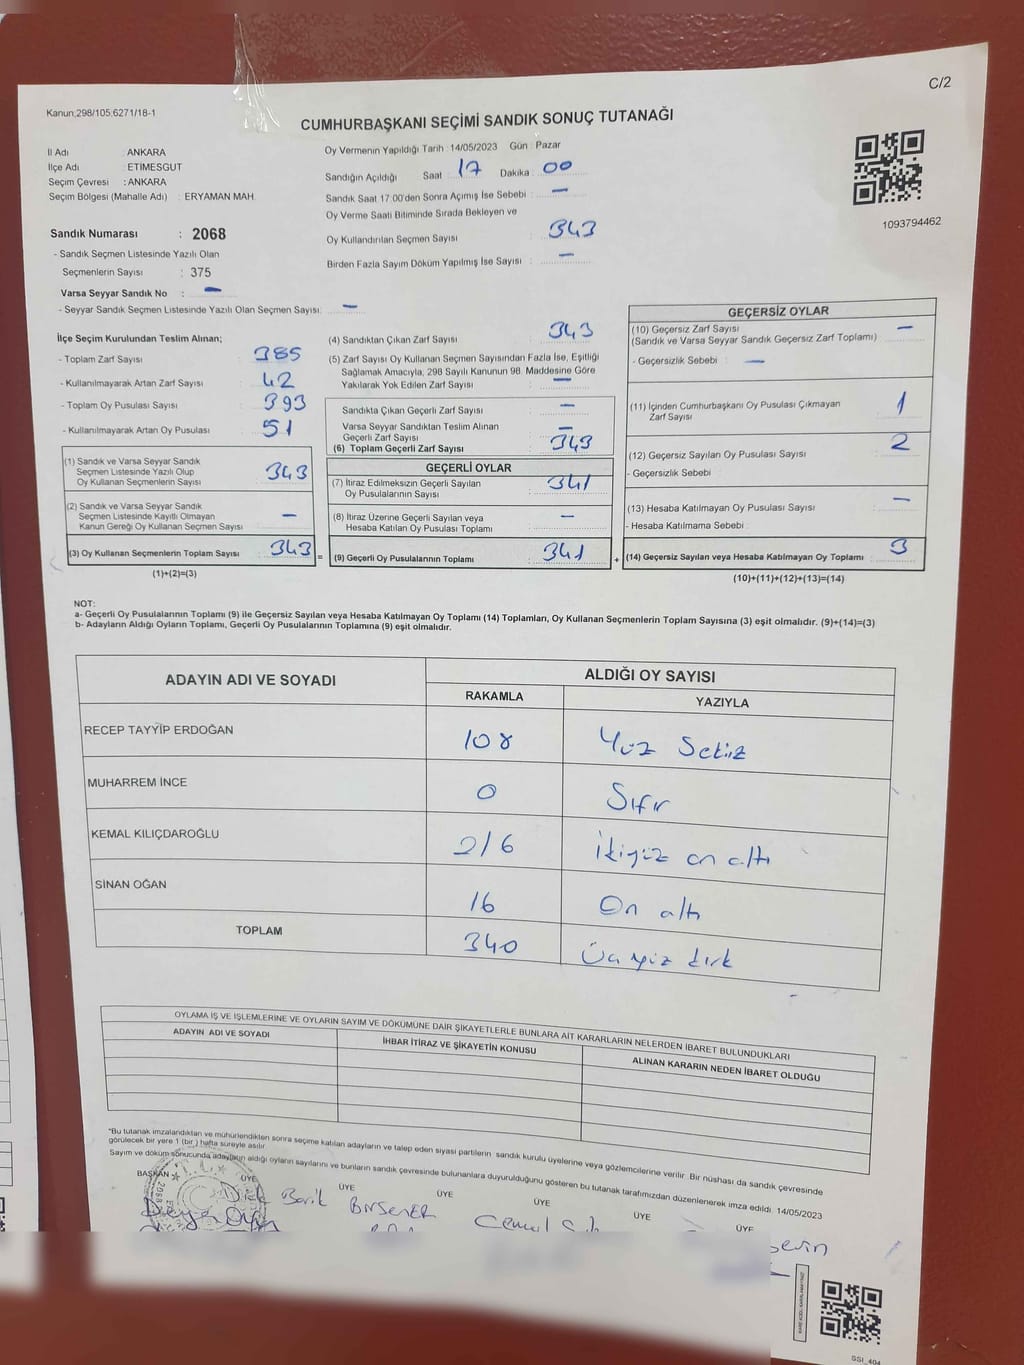 C/2
Kanun;298/105;6271/18-1
CUMHURBAŞKANI SEÇİMİ SANDIK SONUÇ TUTANAĞI
İl Adı : ANKARA
İlçe Adı : ETİMESGUT
Seçim Çevresi : ANKARA
Seçim Bölgesi (Mahalle Adı) : ERYAMAN MAH.
Sandık Numarası : 2068
- Sandık Seçmen Listesinde Yazılı Olan
Seçmenlerin Sayısı : 375
Varsa Seyyar Sandık No : –
- Seyyar Sandık Seçmen Listesinde Yazılı Olan Seçmen Sayısı: –
Oy Vermenin Yapıldığı Tarih : 14/05/2023 Gün : Pazar
Sandığın Açıldığı Saat : 17 Dakika : 00
Sandık Saat 17.00'den Sonra Açılmış İse Sebebi : –
Oy Verme Saati Bitiminde Sırada Bekleyen ve
Oy Kullandırılan Seçmen Sayısı : 343
Birden Fazla Sayım Döküm Yapılmış İse Sayısı : –
1093794462
İlçe Seçim Kurulundan Teslim Alınan;
- Toplam Zarf Sayısı : 385
- Kullanılmayarak Artan Zarf Sayısı : 42
- Toplam Oy Pusulası Sayısı : 393
- Kullanılmayarak Artan Oy Pusulası : 51
(1) Sandık ve Varsa Seyyar Sandık
Seçmen Listesinde Yazılı Olup
Oy Kullanan Seçmenlerin Sayısı : 343
(2) Sandık ve Varsa Seyyar Sandık
Seçmen Listesinde Kayıtlı Olmayan
Kanun Gereği Oy Kullanan Seçmen Sayısı : –
(3) Oy Kullanan Seçmenlerin Toplam Sayısı : 343 =
(1)+(2)=(3)
(4) Sandıktan Çıkan Zarf Sayısı : 343
(5) Zarf Sayısı Oy Kullanan Seçmen Sayısından Fazla İse, Eşitliği
Sağlamak Amacıyla, 298 Sayılı Kanunun 98. Maddesine Göre
Yakılarak Yok Edilen Zarf Sayısı : –
Sandıkta Çıkan Geçerli Zarf Sayısı : –
Varsa Seyyar Sandıktan Teslim Alınan
Geçerli Zarf Sayısı : –
(6) Toplam Geçerli Zarf Sayısı : 343
GEÇERLİ OYLAR
(7) İtiraz Edilmeksizin Geçerli Sayılan
Oy Pusulalarının Sayısı : 341
(8) İtiraz Üzerine Geçerli Sayılan veya
Hesaba Katılan Oy Pusulası Toplamı : –
(9) Geçerli Oy Pusulalarının Toplamı : 341 +
GEÇERSİZ OYLAR
(10) Geçersiz Zarf Sayısı : –
(Sandık ve Varsa Seyyar Sandık Geçersiz Zarf Toplamı)
- Geçersizlik Sebebi : –
(11) İçinden Cumhurbaşkanı Oy Pusulası Çıkmayan
Zarf Sayısı : 1
(12) Geçersiz Sayılan Oy Pusulası Sayısı : 2
- Geçersizlik Sebebi :
(13) Hesaba Katılmayan Oy Pusulası Sayısı : –
- Hesaba Katılmama Sebebi :
(14) Geçersiz Sayılan veya Hesaba Katılmayan Oy Toplamı : 3
(10)+(11)+(12)+(13)=(14)
NOT:
a- Geçerli Oy Pusulalarının Toplamı (9) ile Geçersiz Sayılan veya Hesaba Katılmayan Oy Toplamı (14) Toplamları, Oy Kullanan Seçmenlerin Toplam Sayısına (3) eşit olmalıdır. (9)+(14)=(3)
b- Adayların Aldığı Oyların Toplamı, Geçerli Oy Pusulalarının Toplamına (9) eşit olmalıdır.
ADAYIN ADI VE SOYADI
ALDIĞI OY SAYISI
RAKAMLA YAZIYLA
RECEP TAYYİP ERDOĞAN 108 Yüz Sekiz
MUHARREM İNCE 0 Sıfır
KEMAL KILIÇDAROĞLU 216 İkiyüz on altı
SİNAN OĞAN 16 On altı
TOPLAM 340 Üçyüz kırk
OYLAMA İŞ VE İŞLEMLERİNE VE OYLARIN SAYIM VE DÖKÜMÜNE DAİR ŞİKAYETLERLE BUNLARA AİT KARARLARIN NELERDEN İBARET BULUNDUKLARI
ADAYIN ADI VE SOYADI İHBAR İTİRAZ VE ŞİKAYETİN KONUSU ALINAN KARARIN NEDEN İBARET OLDUĞU
*Bu tutanak imzalandıktan ve mühürlendikten sonra seçime katılan adayların ve talep eden siyasi partilerin sandık kurulu üyelerine veya gözlemcilerine verilir. Bir nüshası da sandık çevresinde
görülecek bir yere 1 (bir ) hafta süreyle asılır.
Sayım ve döküm sonucunda adayların aldığı oyların sayılarını ve bunların sandık çevresinde bulunanlara duyurulduğunu gösteren bu tutanak tarafımızdan düzenlenerek imza edildi. 14/05/2023
BAŞKAN ÜYE ÜYE ÜYE ÜYE ÜYE ÜYE
SSI_404